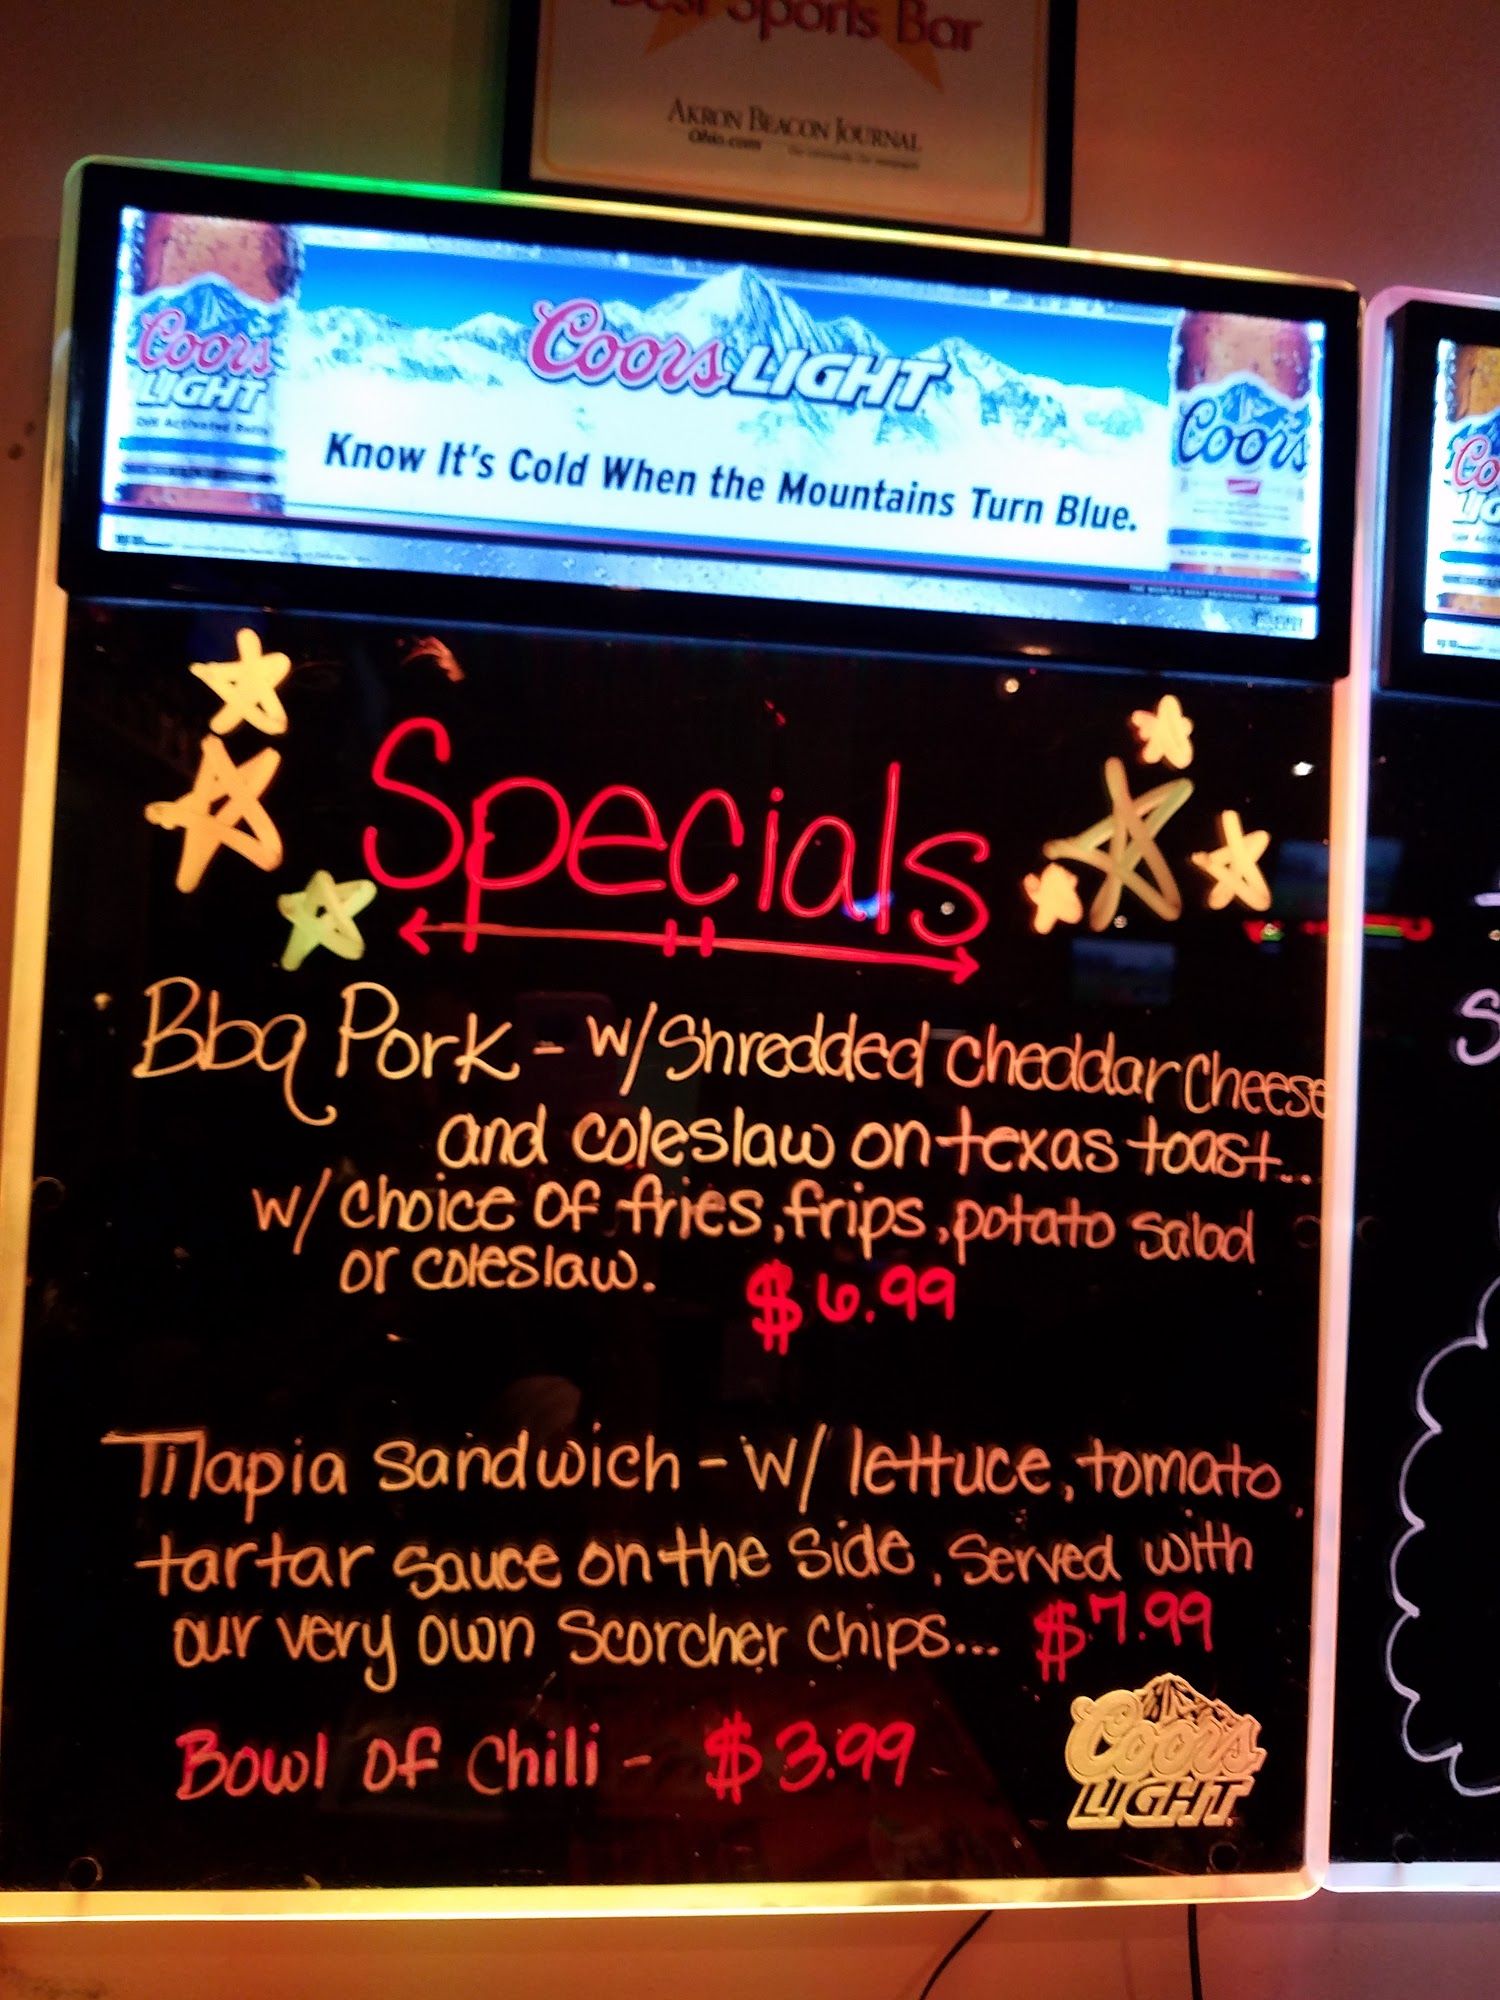 Best Sports Bar
AKRON BEACON JOURNAL
Ohio.com
Coors LIGHT
Know It's Cold When the Mountains Turn Blue.
Coors
LIGHT
Coors
Specials
Bbq Pork - w/ Shredded cheddar cheese
and coleslaw on texas toast...
w/ choice of fries, frips, potato salad
or coleslaw.
$6.99
Tilapia Sandwich - w/ lettuce, tomato
tartar sauce on the side. Served with
our very own Scorcher chips... $7.99
Bowl of Chili - $3.99
Coors
LIGHT